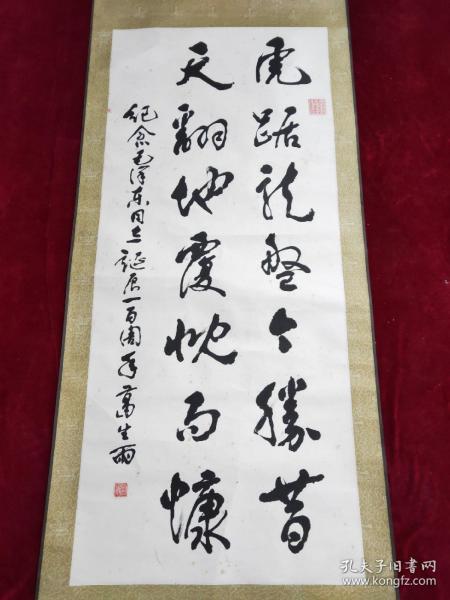 虎踞龙盘今勝昔
天翻地覆慨而慷
纪念毛泽东同志诞辰一百周年 萬生雨
孔夫子旧书网
www.kongfz.com